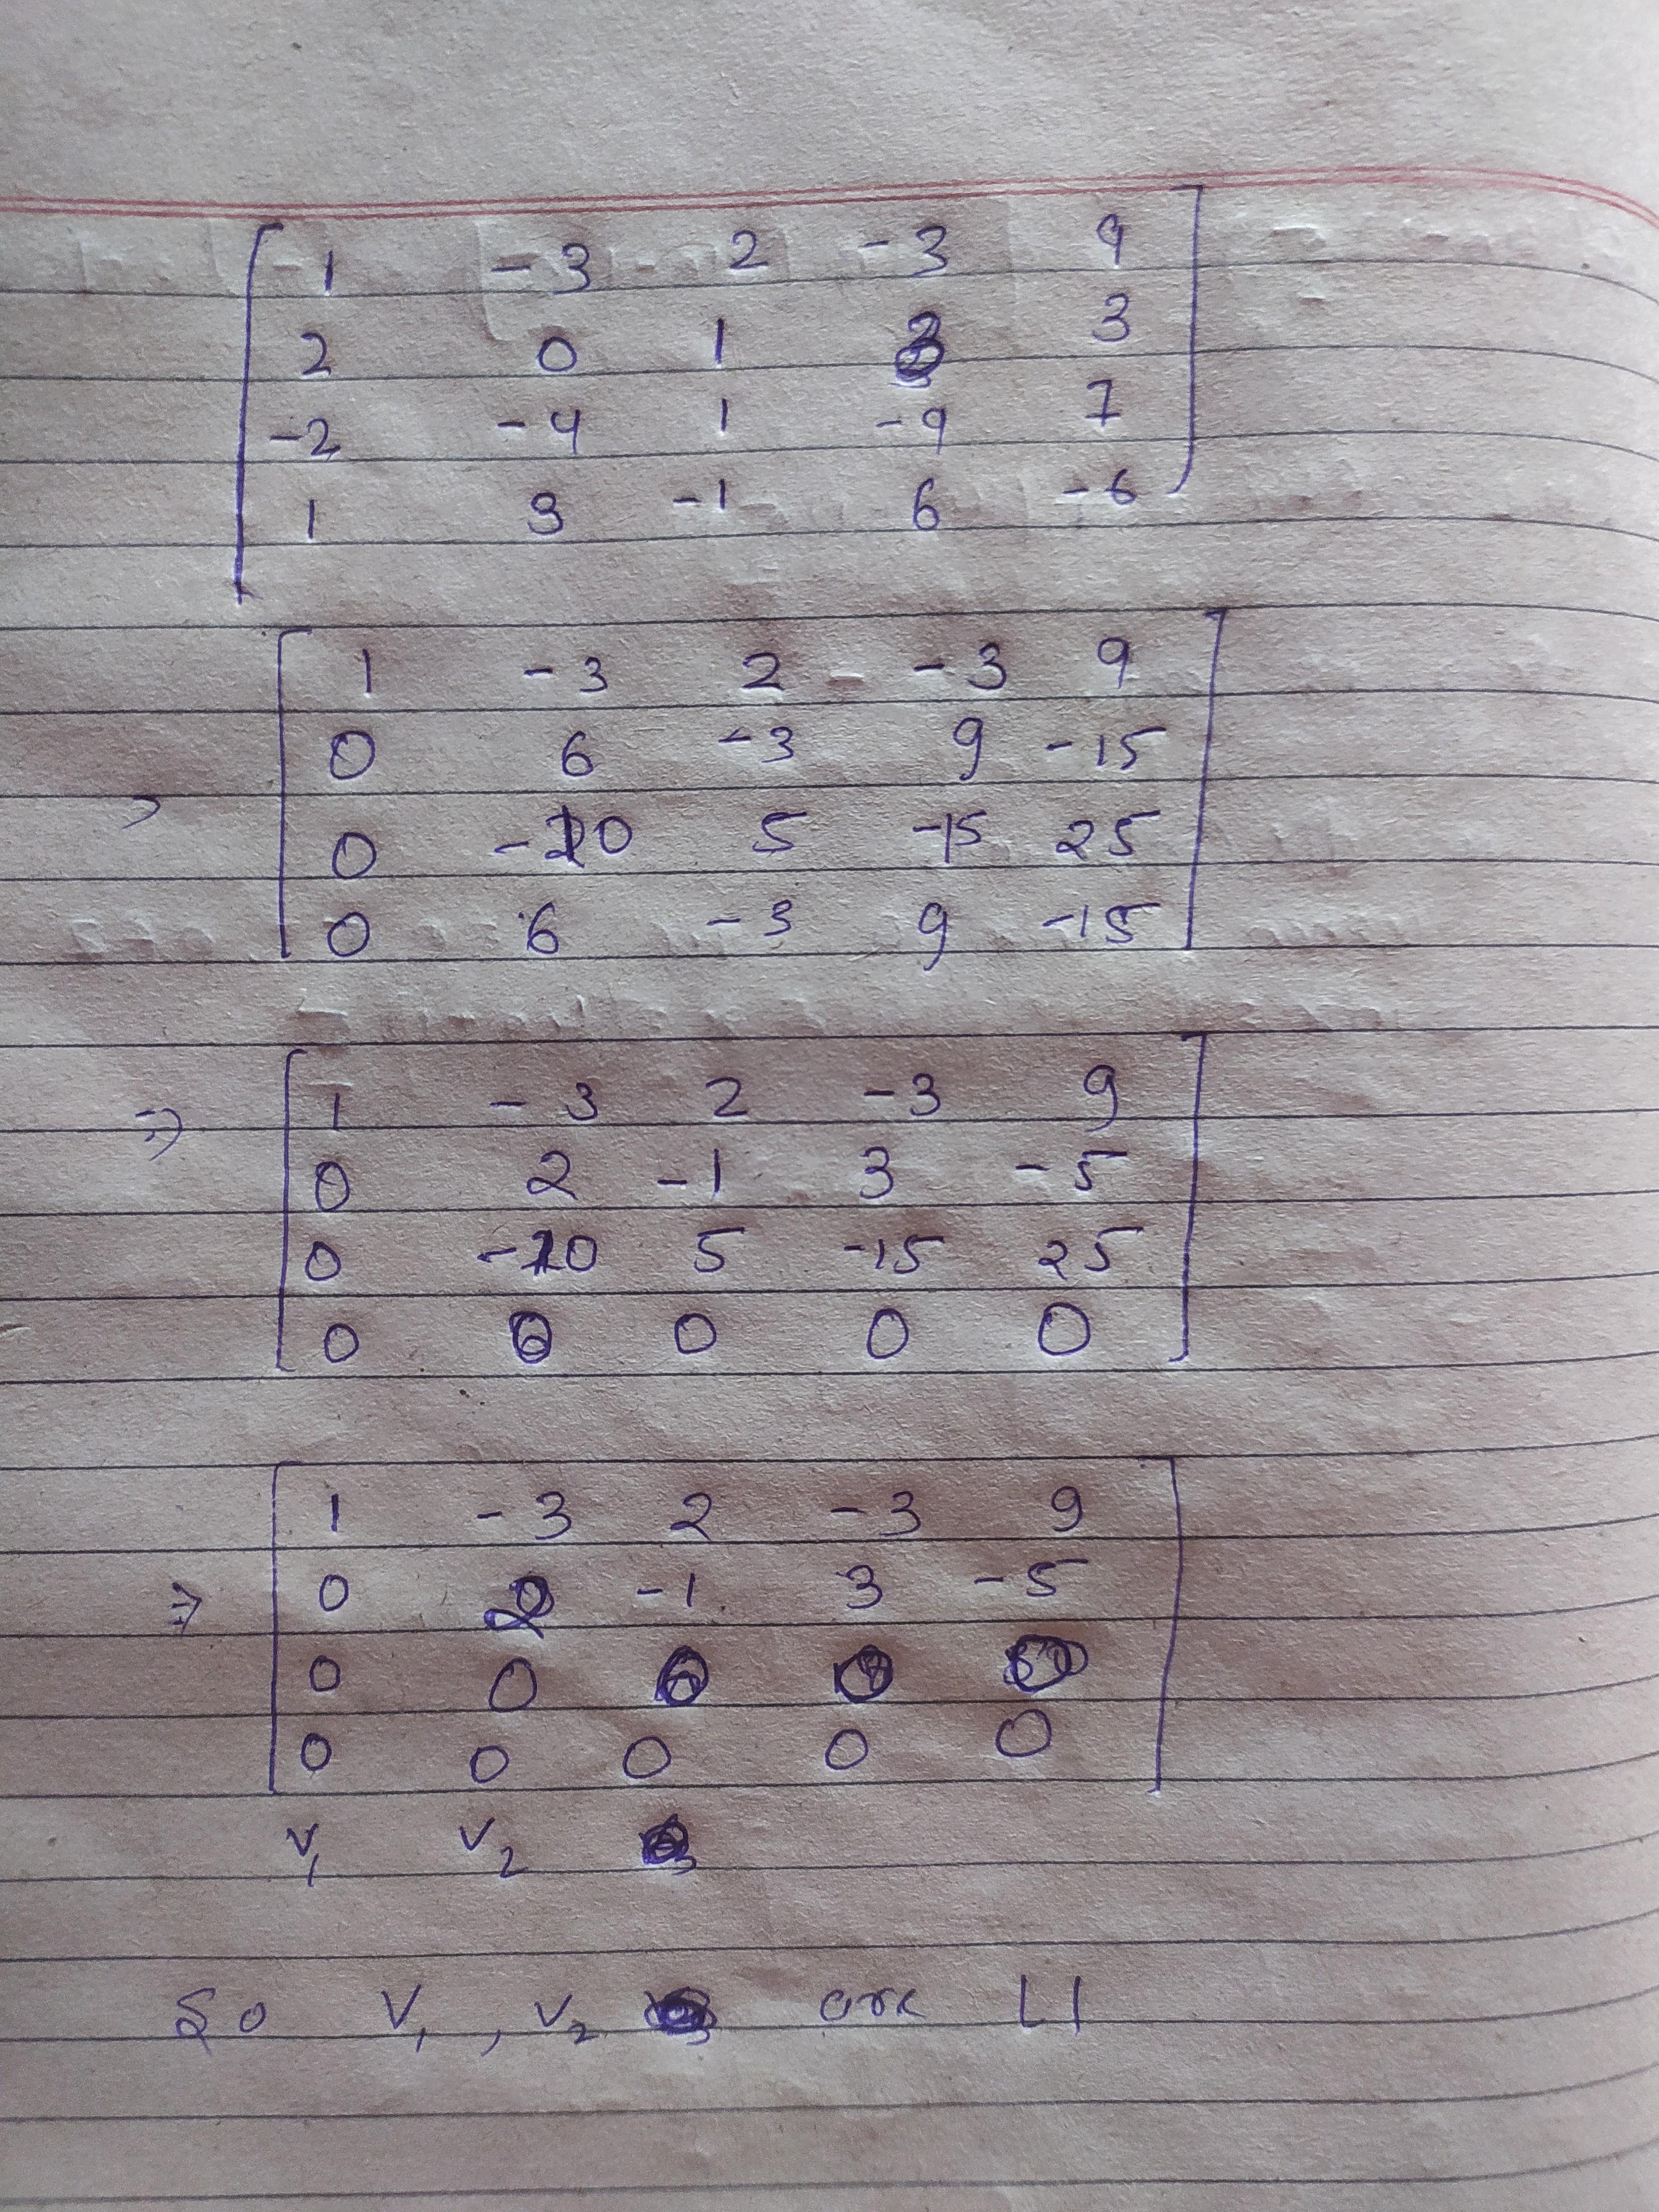 1 -3 2 -3 9
2 0 1 3 3
-2 -4 1 -9 7
1 3 -1 6 -6
1 -3 2 -3 9
0 6 -3 9 -15
0 -10 5 -15 25
0 6 -3 9 -15
⇒ 1 -3 2 -3 9
0 2 -1 3 -5
0 -10 5 -15 25
0 0 0 0 0
⇒ 1 -3 2 -3 9
0 2 -1 3 -5
0 0 0 0 0
0 0 0 0 0
V₁ V₂
So V₁, V₂ are LI